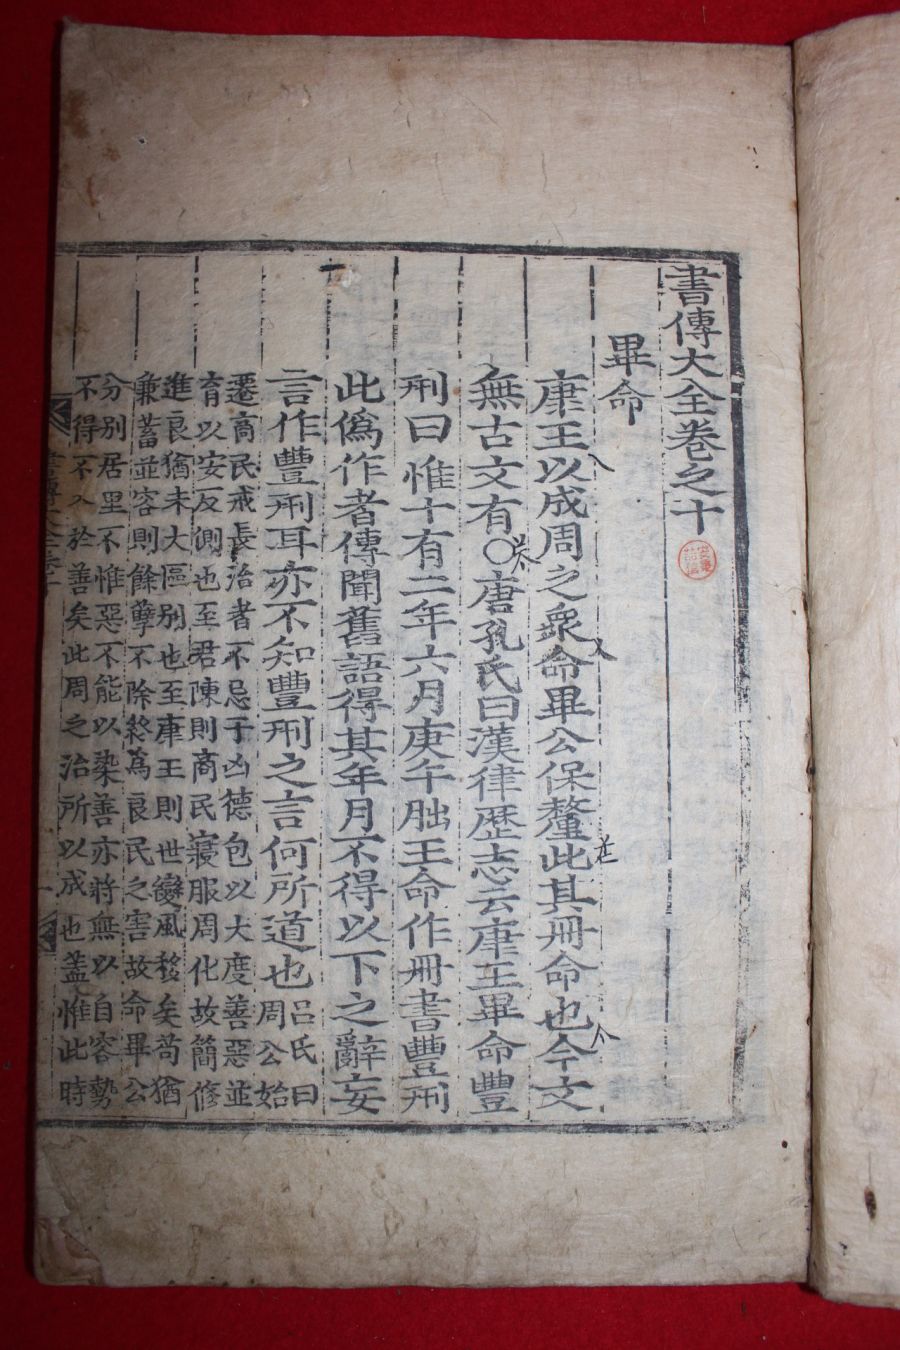 書傳大全卷之十
畢命
康王以成周之衆命畢公保釐此其冊命也今文
無古文有○唐孔氏曰漢律歷志云康王畢命豐
刑曰惟十有二年六月庚午朏王命作冊書豐刑
此僞作者傳聞舊語得其年月不得以下之辭妄
言作豐刑耳亦不知豐刑之言何所道也
呂氏曰
周公始
遷商民戒長治者不忌于凶德包以大度善惡並
育以安反側也至君陳則商民寖服周化故簡修
進良猶未大區別也至康王則世變風移矣苟猶
兼蓄並容則餘孽不除終為良民之害故命畢公
分別居里不惟惡不能以染善亦將無以自容勢
不得不入於善矣此周之治所以成也蓋惟此時
書傳大全卷